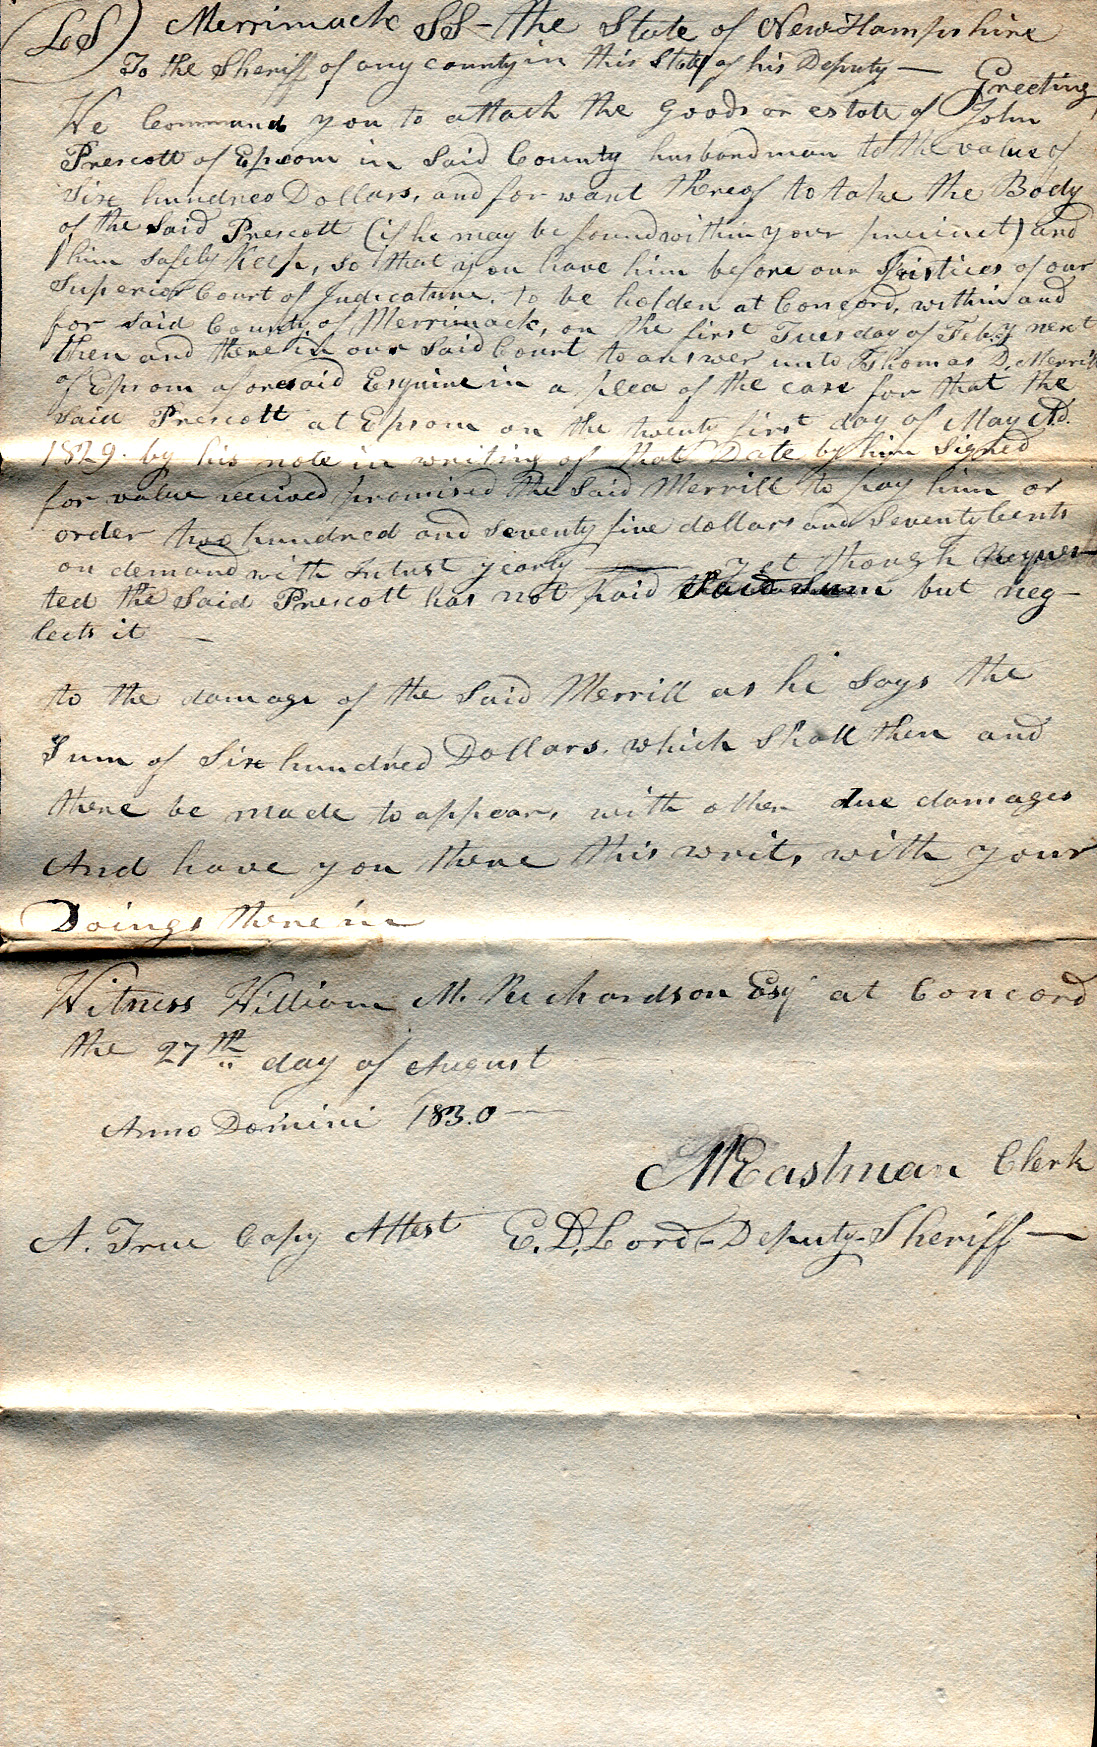 (LS) Merrimack SS - the State of New-Hampshire
To the Sheriff of any county in this State, of his Deputy — Greeting
We Command you to attach the Goods or estate of John
Prescott of Epsom in Said County husbandman to the value of
Six hundred Dollars, and for want thereof to take the Body
of the Said Prescott (if he may be found within your precinct) and
him Safely Keep, So that you have him before our Justices of our
Superior Court of Judicature. to be holden at Concord, within and
for Said County of Merrimack, on the first Tuesday of Feb.y next
then and there in our Said Court to answer unto Thomas D. Merrill
of Epsom aforesaid Esquire in a plea of the case for that the
Said Prescott at Epsom on the twenty first day of May A.D.
1829. by his note in writing of that Date by him Signed
for value received promised the Said Merrill to pay him or
order two hundred and Seventy five dollars and Seventy Cents
on demand with Intrest yearly — yet though Reques-
ted the Said Prescott has not paid Said Sum but neg-
lects it —
to the damage of the Said Merrill as he Says the
Sum of Six hundred Dollars, which Shall then and
there be made to appear, with other due damages
And have you there this writ, with your
Doings therein
Witness William M. Richardson Esq at Concord
the 27th day of August
Anno Domini 1830 —
M Eastman Clerk
A. True Copy Attest E. D. Lord - Deputy-Sheriff —